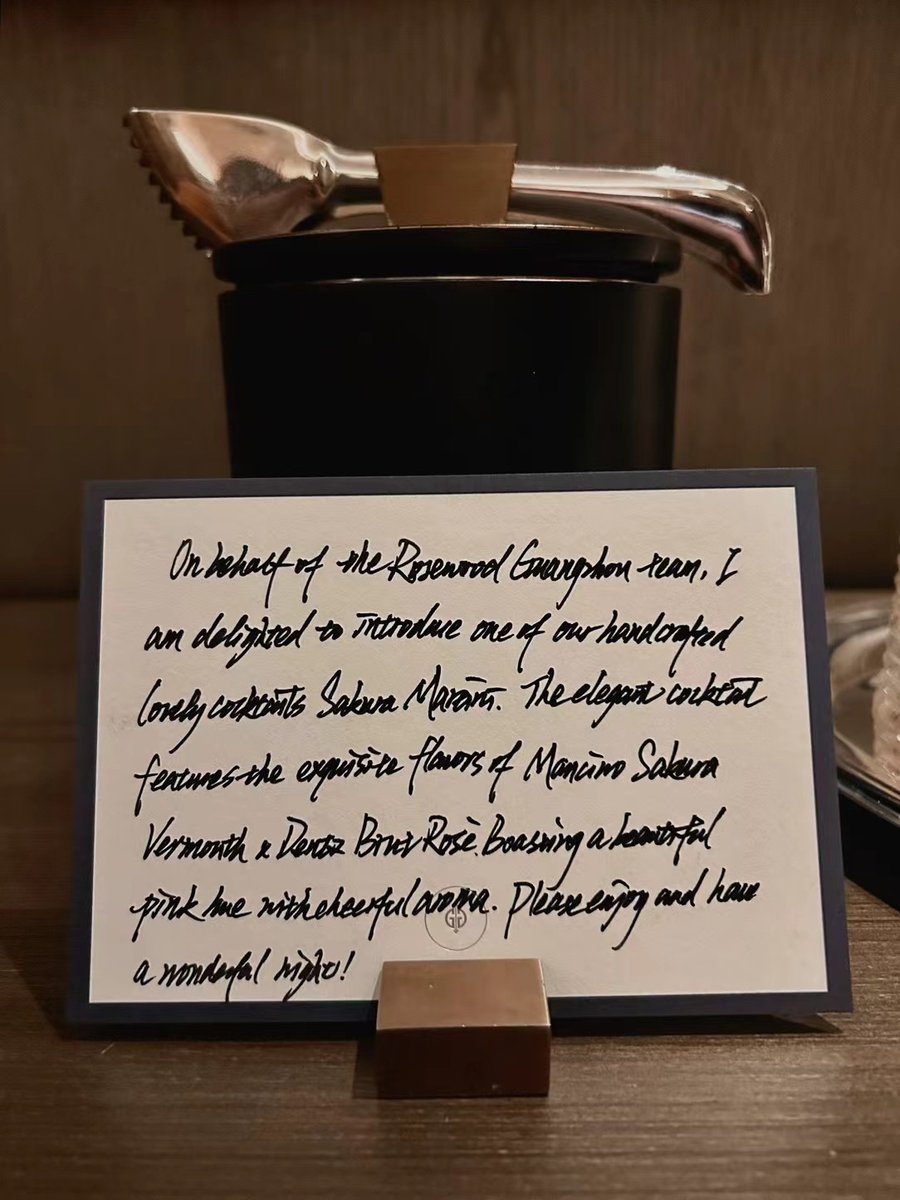 On behalf of the Rosewood Guangzhou team, I
am delighted to introduce one of our handcrafted
lovely cocktails Sakura Martini. The elegant cocktail
features the exquisite flavors of Mancino Sakura
Vermouth x Deutz Brut Rosè. Boasting a beautiful
pink hue with cheerful aroma. Please enjoy and have
a wonderful night!